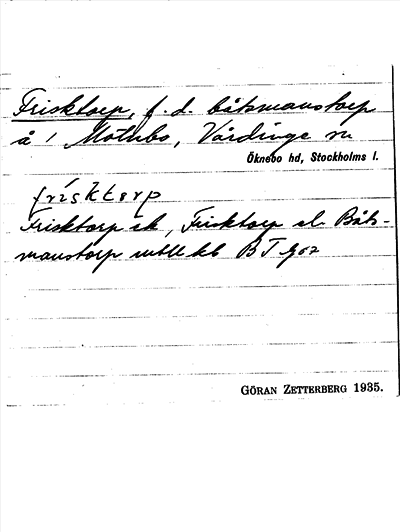 Frisktorp, f. d. båtsmanstorp
å 1 Mölnbo, Vårdinge sn
Öknebo hd, Stockholms l.
frisktorp
Frisktorp ek, Frisktorp el. Båts-
manstorp kb BT 902
GÖRAN ZETTERBERG 1935.